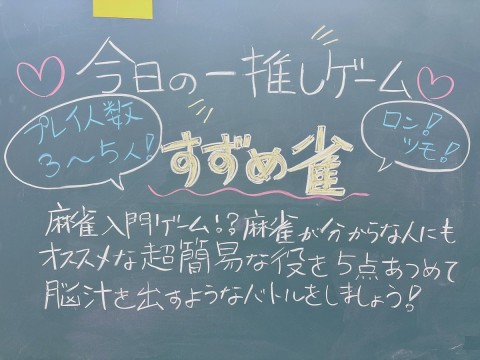 今日の一推しゲーム
プレイ人数
3〜5人!
すずめ雀
ロン!
ツモ!
麻雀入門ゲーム!?麻雀が分からな人にも
オススメな超簡易な役を5点あつめて
脳汁を出すようなバトルをしましょう!